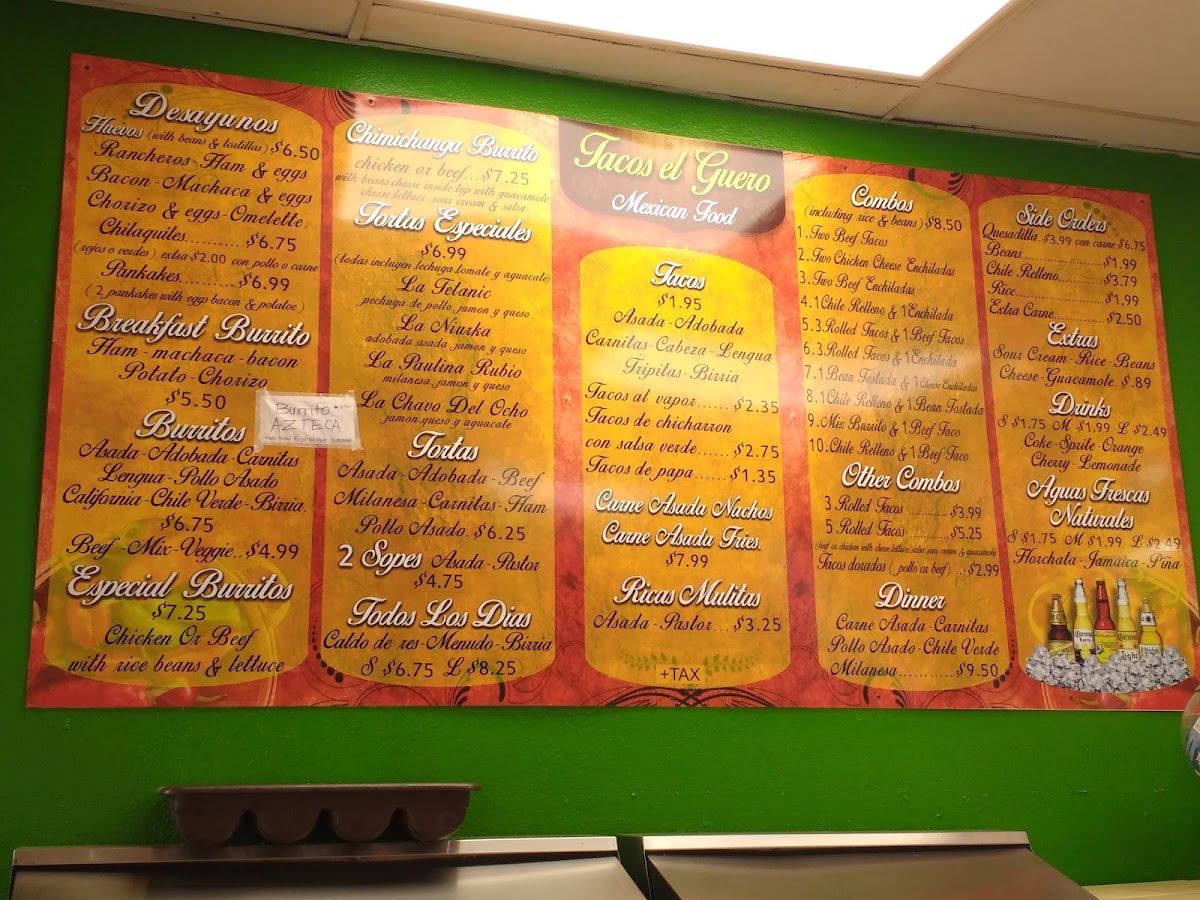 Desayunos
Huevos (with beans & tortillas) $6.50
Rancheros-Ham & eggs
Bacon-Machaca & eggs
Chorizo & eggs-Omelette.
Chilaquiles.......... $6.75
(rojos o verdes) extra $2.00 con pollo o carne
Pankakes..........$6.99
(2 pankakes with eggs bacon & potatoe)
Breakfast Burrito
Ham-machaca-bacon
Potato-Chorizo
$5.50
Burrito
AZTECA
Burritos
Asada-Adobada-Carnitas
Lengua-Pollo Asado
California-Chile Verde-Birria.
$6.75
Beef-Mix-Veggie..$4.99
Especial Burritos
$7.25
Chicken Or Beef
with rice beans & lettuce
Chimichanga Burrito
chicken or beef...$7.25
with beans,chesse inside top with guacamole
chesse,lettuce,sour cream & salsa
Tortas Especiales
$6.99
(todas incluyen lechuga,tomate y aguacate)
La Tetanic
pechuga de pollo, jamon y queso
La Niurka
adobada,asada,jamon y queso
La Paulina Rubio
milanesa, jamon y queso
La Chavo Del Ocho
jamon,queso y aguacate
Tortas
Asada-Adobada-Beef
Milanesa-Carnitas-Ham
Pollo Asado. $6.25
2 Sopes Asada-Pastor
$4.75
Todos Los Dias
Caldo de res-Menudo-Birria
S $6.75 L $8.25
Tacos el Guero
Mexican Food
Tacos
$1.95
Asada-Adobada
Carnitas-Cabeza-Lengua
Tripitas-Birria
Tacos al vapor...... $2.35
Tacos de chicharron
con salsa verde...... $2.75
Tacos de papa...... $1.35
Carne Asada Nachos
Carne Asada Fries.
$7.99
Ricas Mulitas
Asada-Pastor... $3.25
+TAX
Combos
(including rice & beans) $8.50
1.Two Beef Tacos
2.Two Chicken Cheese Enchiladas
3.Two Beef Enchiladas
4.1 Chile Relleno & 1 Enchilada
5.3 Rolled Tacos & 1 Beef Tacos
6.3 Rolled Tacos & 1 Enchilada
7.1 Bean Tostada & 1 Cheese Enchiladas
8.1 Chile Relleno & 1 Bean Tostada
9.Mix Burrito & 1 Beef Taco
10.Chile Relleno & 1 Beef Taco
Other Combos
3 Rolled Tacos ............$3.99
5 Rolled Tacos ............$5.25
(beef or chicken with chesse,lettuce,salsa,sour cream & guacamole)
Tacos dorados (pollo or beef)...$2.99
Dinner
Carne Asada-Carnitas
Pollo Asado-Chile Verde
Milanesa............$9.50
Side Orders
Quesadilla..$3.99 con carne $6.75
Beans....................$1.99
Chile Relleno............$3.79
Rice.....................$1.99
Extra Carne..............$2.50
Extras
Sour Cream-Rice-Beans
Cheese-Guacamole. $.89
Drinks
S $1.75 M $1.99 L $2.49
Coke-Sprite-Orange
Cherry-Lemonade
Aguas Frescas
Naturales
S $1.75 M $1.99 L $2.49
Horchata-Jamaica-Piña
Corona
Light